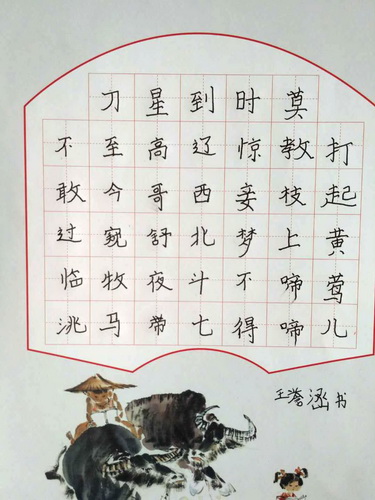 打起黄莺儿
莫教枝上啼啼
时惊妾梦不得
到辽西北斗七
星高哥舒夜带
刀至今窥牧马
不敢过临洮
王誉涵书